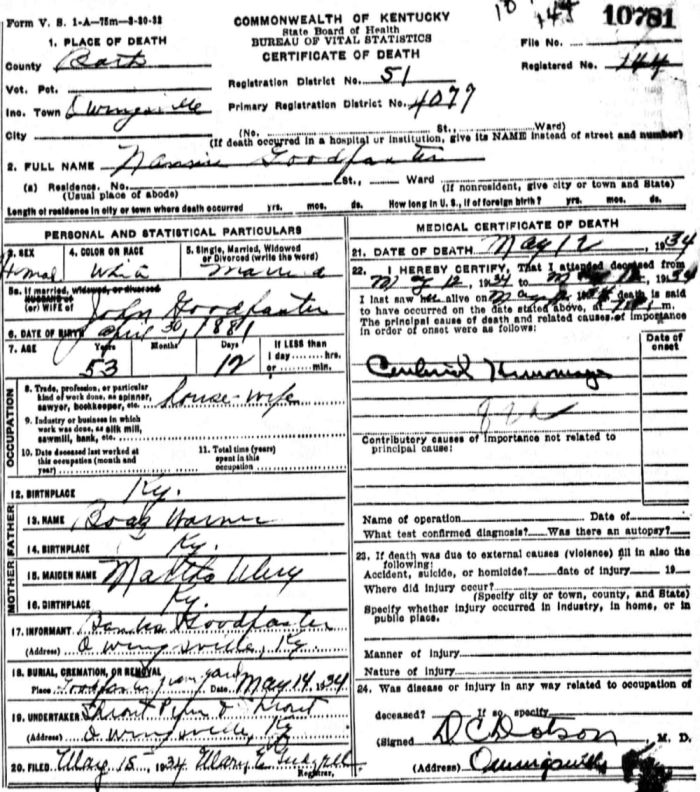 Form V. S. 1-A-75m-8-30-32
COMMONWEALTH OF KENTUCKY
State Board of Health
BUREAU OF VITAL STATISTICS
CERTIFICATE OF DEATH
10781
File No.
Registered No. 144
1. PLACE OF DEATH
County Bath
Vot. Pct.
Inc. Town Owingsville
City
Registration District No. 51
Primary Registration District No. 4077
(No. St., Ward)
(If death occurred in a hospital or institution, give its NAME instead of street and number)
2. FULL NAME Nannie Goodpaster
(a) Residence. No. St., Ward
(Usual place of abode)
(If nonresident, give city or town and State)
Length of residence in city or town where death occurred yrs. mos. ds. How long in U. S., if of foreign birth? yrs. mos. ds.
PERSONAL AND STATISTICAL PARTICULARS
3. SEX
Femal
4. COLOR OR RACE
White
5. Single, Married, Widowed
or Divorced (write the word)
Married
5a. If married, widowed, or divorced
HUSBAND of
(or) WIFE of John Goodpaster
6. DATE OF BIRTH April 30, 1881
7. AGE Years Months Days
53 12
If LESS than
1 day hrs.
or min.
OCCUPATION
8. Trade, profession, or particular
kind of work done, as spinner,
sawyer, bookkeeper, etc. house-wife
9. Industry or business in which
work was done, as silk mill,
sawmill, bank, etc.
10. Date deceased last worked at
this occupation (month and
year)
11. Total time (years)
spent in this
occupation
12. BIRTHPLACE Ky.
FATHER
13. NAME Boaz Warner
14. BIRTHPLACE Ky.
MOTHER
15. MAIDEN NAME Martha Ulery
16. BIRTHPLACE Ky.
17. INFORMANT Banks Goodpaster
(Address) Owingsville, Ky.
18. BURIAL, CREMATION, OR REMOVAL
Place Goodpaster grave yard Date May 14, 1934
19. UNDERTAKER
(Address) Owingsville, Ky
20. FILED May 15, 1934 Mary E.
Registrar.
MEDICAL CERTIFICATE OF DEATH
21. DATE OF DEATH May 12, 1934
22. I HEREBY CERTIFY, That I attended deceased from
May 12, 1934 to May 12, 1934
I last saw her alive on May 12, 1934 death is said
to have occurred on the date stated above, at m.
The principal cause of death and related causes of importance
in order of onset were as follows:
Date of
onset
Cerebral Hemorrhage
82a
Contributory causes of importance not related to
principal cause:
Name of operation Date of
What test confirmed diagnosis? Was there an autopsy?
23. If death was due to external causes (violence) fill in also the
following:
Accident, suicide, or homicide? date of injury 19
Where did injury occur?
(Specify city or town, county, and State)
Specify whether injury occurred in industry, in home, or in
public place.
Manner of injury
Nature of injury
24. Was disease or injury in any way related to occupation of
deceased? If so, specify
(Signed) D C Dotson, M. D.
(Address) Owingsville